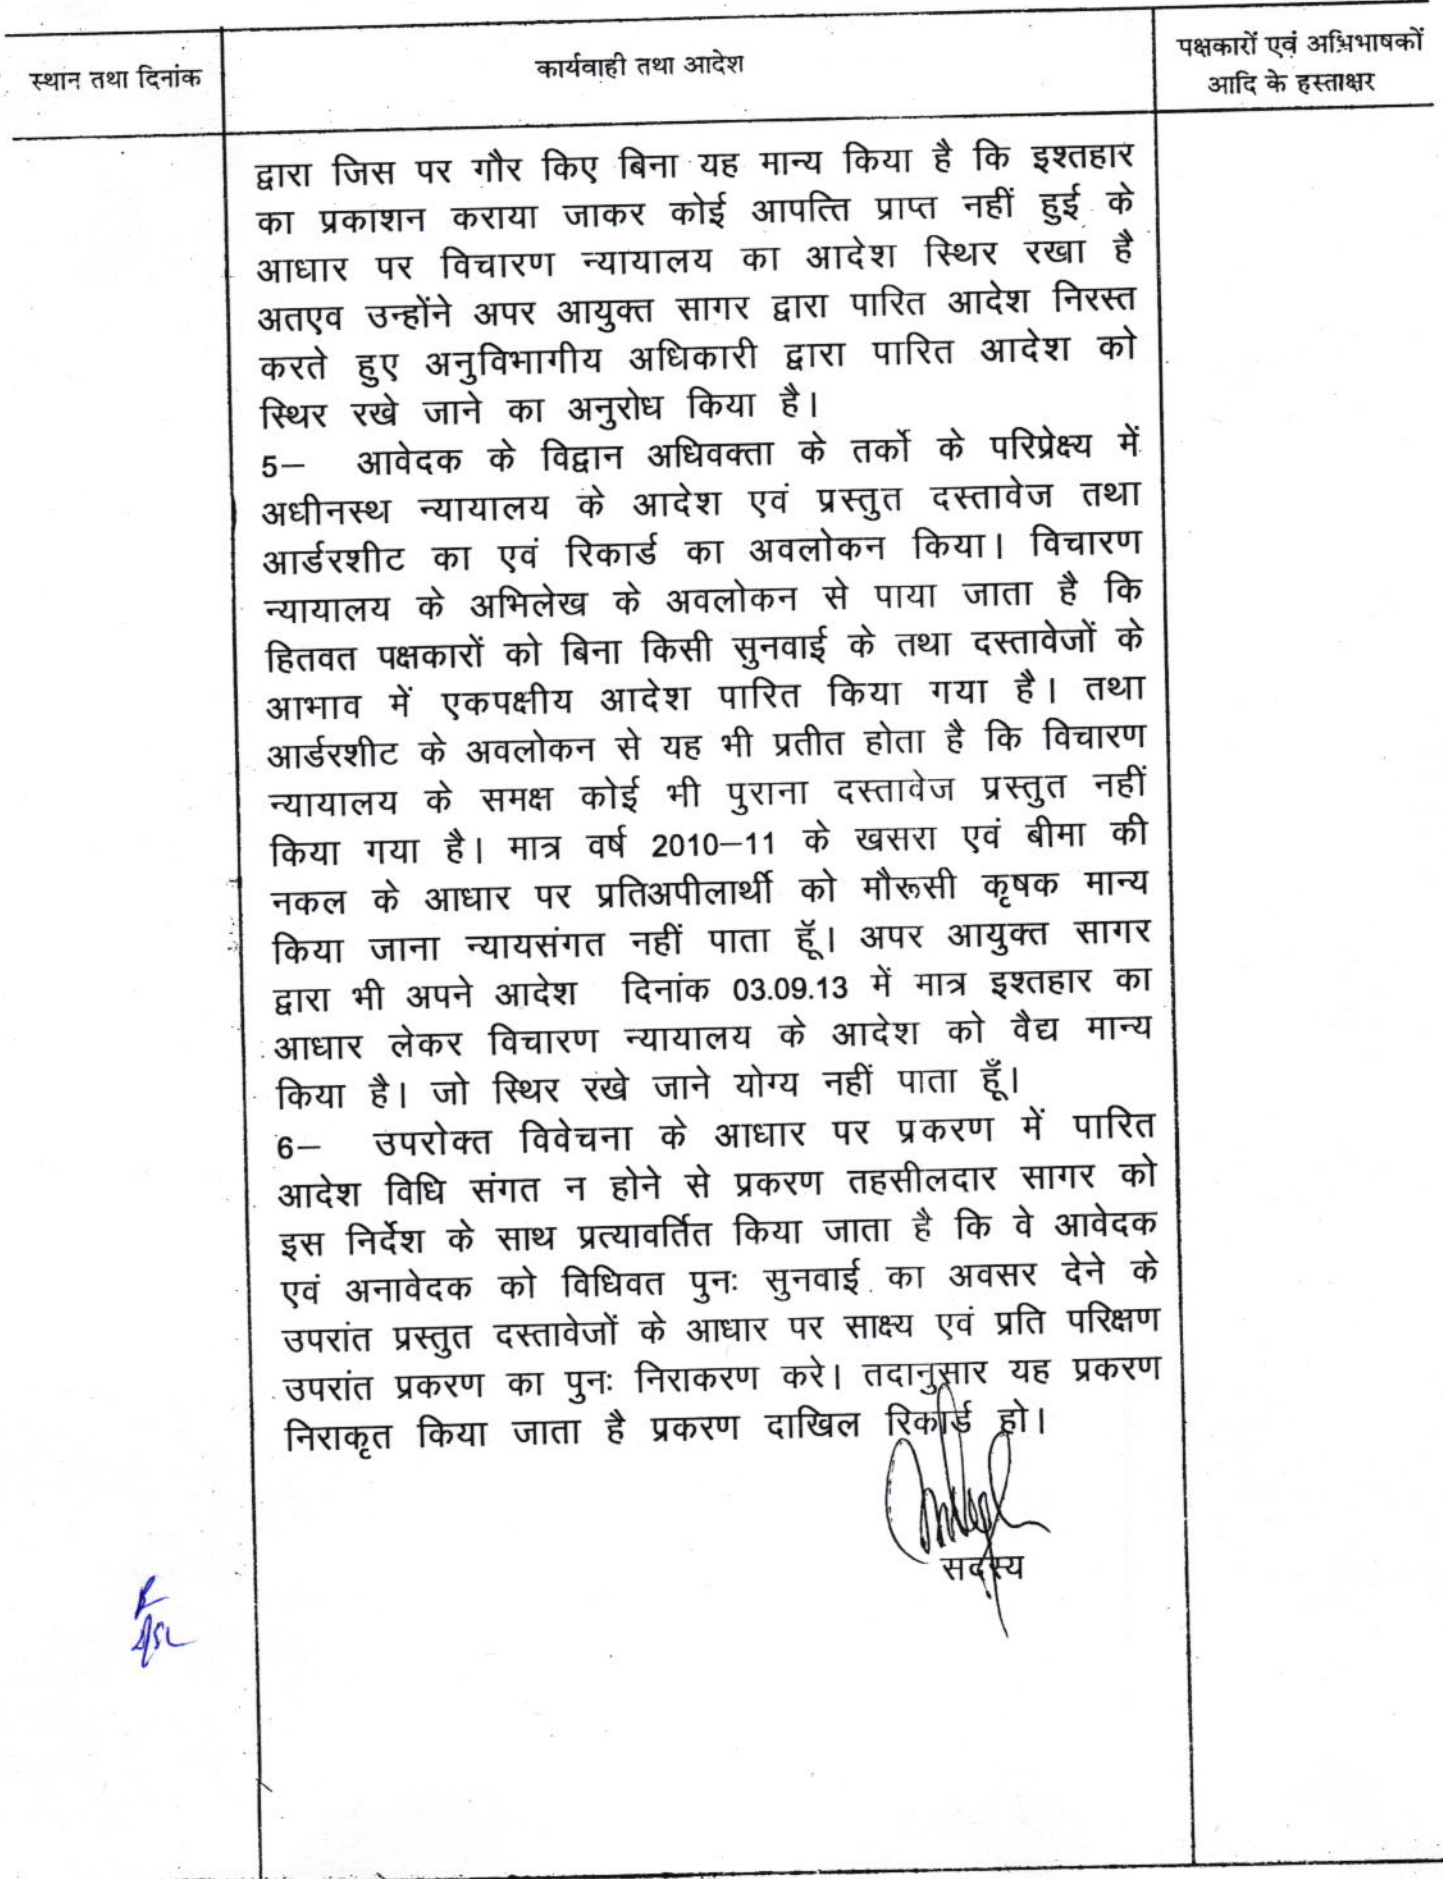 स्थान तथा दिनांक
कार्यवाही तथा आदेश
पक्षकारों एवं अभिभाषकों
आदि के हस्ताक्षर
द्वारा जिस पर गौर किए बिना यह मान्य किया है कि इश्तहार
का प्रकाशन कराया जाकर कोई आपत्ति प्राप्त नहीं हुई के
आधार पर विचारण न्यायालय का आदेश स्थिर रखा है
अतएव उन्होंने अपर आयुक्त सागर द्वारा पारित आदेश निरस्त
करते हुए अनुविभागीय अधिकारी द्वारा पारित आदेश को
स्थिर रखे जाने का अनुरोध किया है।
5– आवेदक के विद्वान अधिवक्ता के तर्को के परिप्रेक्ष्य में
अधीनस्थ न्यायालय के आदेश एवं प्रस्तुत दस्तावेज तथा
आर्डरशीट का एवं रिकार्ड का अवलोकन किया। विचारण
न्यायालय के अभिलेख के अवलोकन से पाया जाता है कि
हितवत पक्षकारों को बिना किसी सुनवाई के तथा दस्तावेजों के
आभाव में एकपक्षीय आदेश पारित किया गया है। तथा
आर्डरशीट के अवलोकन से यह भी प्रतीत होता है कि विचारण
न्यायालय के समक्ष कोई भी पुराना दस्तावेज प्रस्तुत नहीं
किया गया है। मात्र वर्ष 2010–11 के खसरा एवं बीमा की
नकल के आधार पर प्रतिअपीलार्थी को मौरूसी कृषक मान्य
किया जाना न्यायसंगत नहीं पाता हूॅ। अपर आयुक्त सागर
द्वारा भी अपने आदेश दिनांक 03.09.13 में मात्र इश्तहार का
आधार लेकर विचारण न्यायालय के आदेश को वैद्य मान्य
किया है। जो स्थिर रखे जाने योग्य नहीं पाता हूँ।
6– उपरोक्त विवेचना के आधार पर प्रकरण में पारित
आदेश विधि संगत न होने से प्रकरण तहसीलदार सागर को
इस निर्देश के साथ प्रत्यावर्तित किया जाता है कि वे आवेदक
एवं अनावेदक को विधिवत पुनः सुनवाई का अवसर देने के
उपरांत प्रस्तुत दस्तावेजों के आधार पर साक्ष्य एवं प्रति परिक्षण
उपरांत प्रकरण का पुनः निराकरण करे। तदानुसार यह प्रकरण
निराकृत किया जाता है प्रकरण दाखिल रिकार्ड हो।
सदस्य